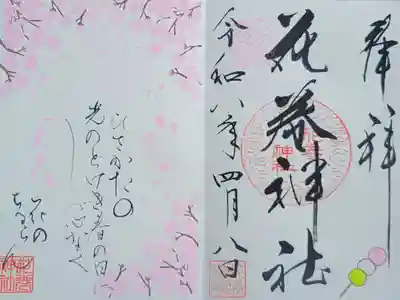 奉拝
花巻神社
令和八年四月八日
ひさかたの
光のどけき春の日に
花の
ちるらむ